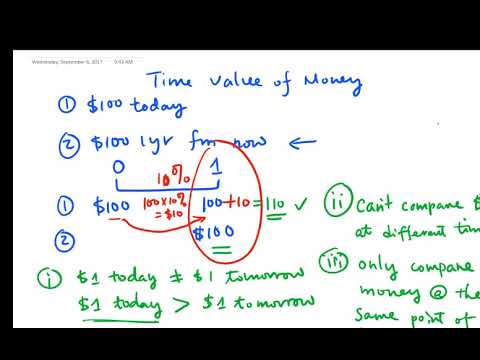 Wednesday, September 6, 2017 9:43 AM
Time Value of Money
① $100 today
② $100 1yr fm now ←
0 10% 1
① $100 100 x 10% = $10 100+10 = 110 ✓
② $100
i $1 today ≠ $1 tomorrow
$1 today > $1 tomorrow
ii Can't compare $
at different tim
iii only compare
money @ the
Same point of